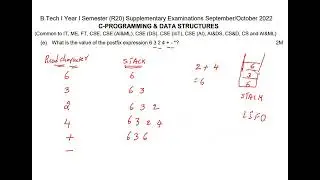 B.Tech I Year I Semester (R20) Supplementary Examinations September/October 2022
C-PROGRAMMING & DATA STRUCTURES
(Common to IT, ME, FT, CSE, CSE (AI&ML), CSE (DS), CSE (IoT), CSE (AI), AI&DS, CS&D, CS and AI&ML)
(e) What is the value of the postfix expression 6 3 2 4 + - *? 2M
Read character STACK
6 6
3 6 3
2 6 3 2
4 6 3 2 4
+ 6 3 6
-
2 + 4
= 6
6
3
6
STACK
LIFO